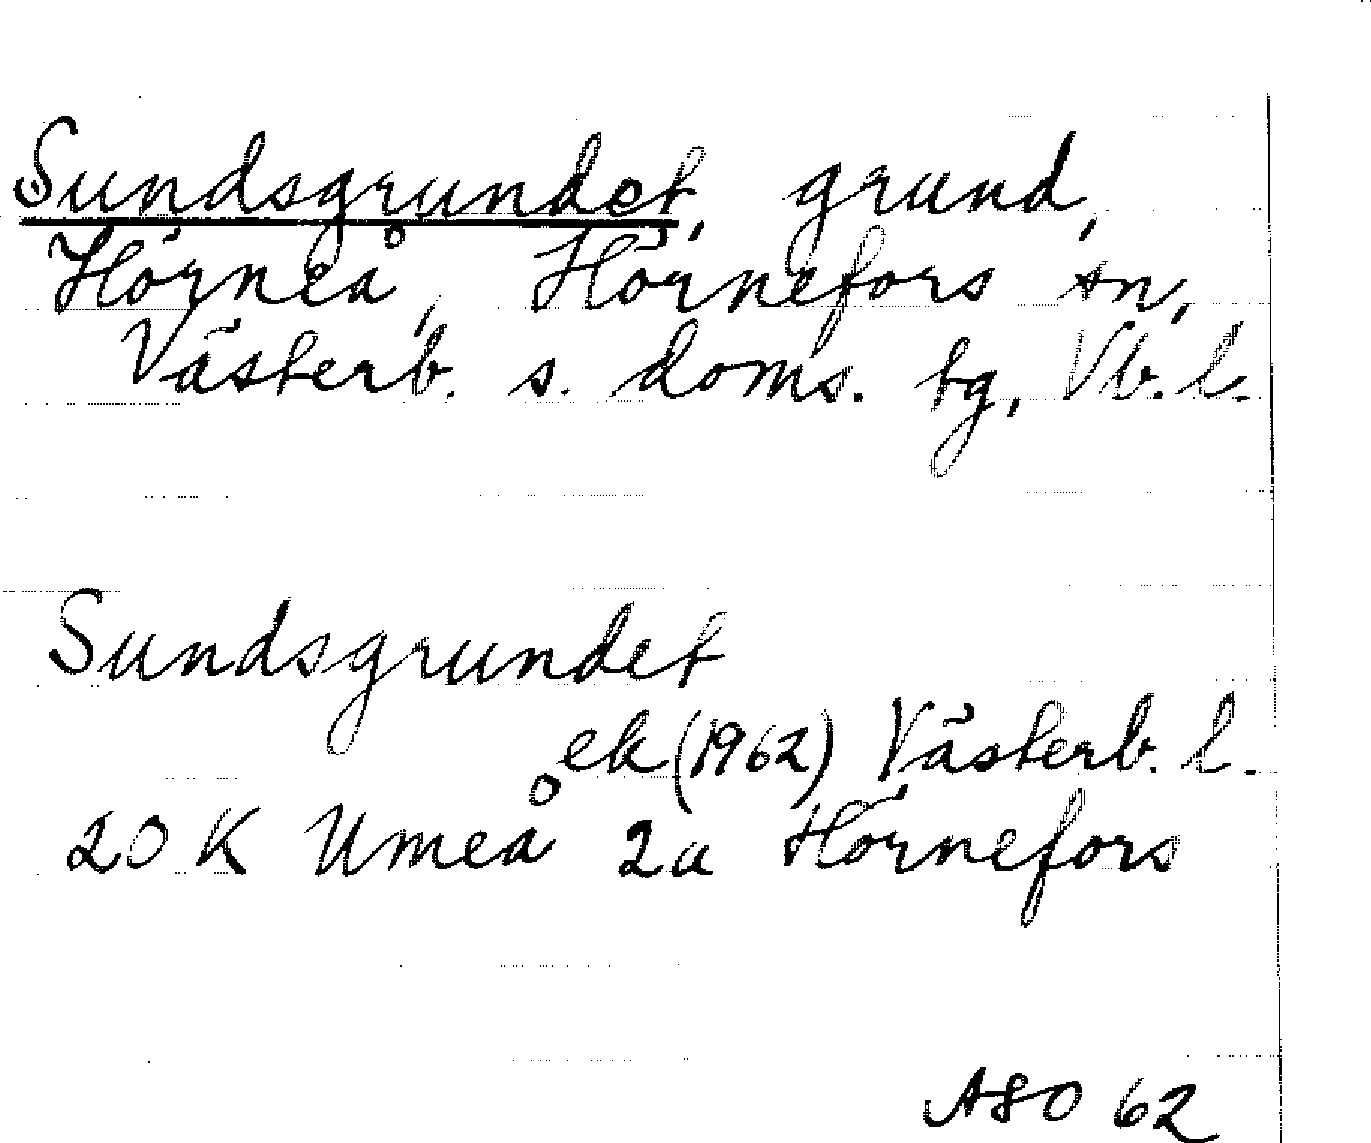 Sundsgrundet, grund,
Hörneå, Hörnefors sn,
Västerb. s. doms. tg, Vb. l.
Sundsgrundet
ek (1962) Västerb. l.
20 K Umeå 2a Hörnefors
ASO 62